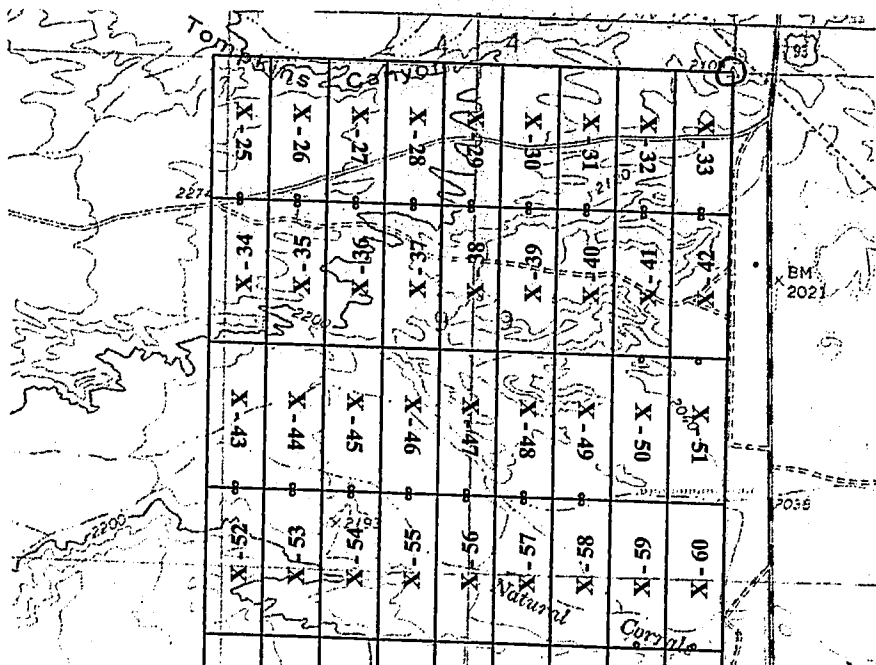 Tompkins Canyon
4
93
2274
X-25
X-26
X-27
X-28
X-29
X-30
X-31
X-32
X-33
2150
X-34
X-35
X-36
X-37
X-38
X-39
X-40
X-41
X-42
BM
2021
2200
9
X-43
X-44
X-45
X-46
X-47
X-48
X-49
X-50
X-51
2038
2200
X-52
X-53
X-54
X-55
X-56
X-57
X-58
X-59
X-60
2193
Natural Corrals